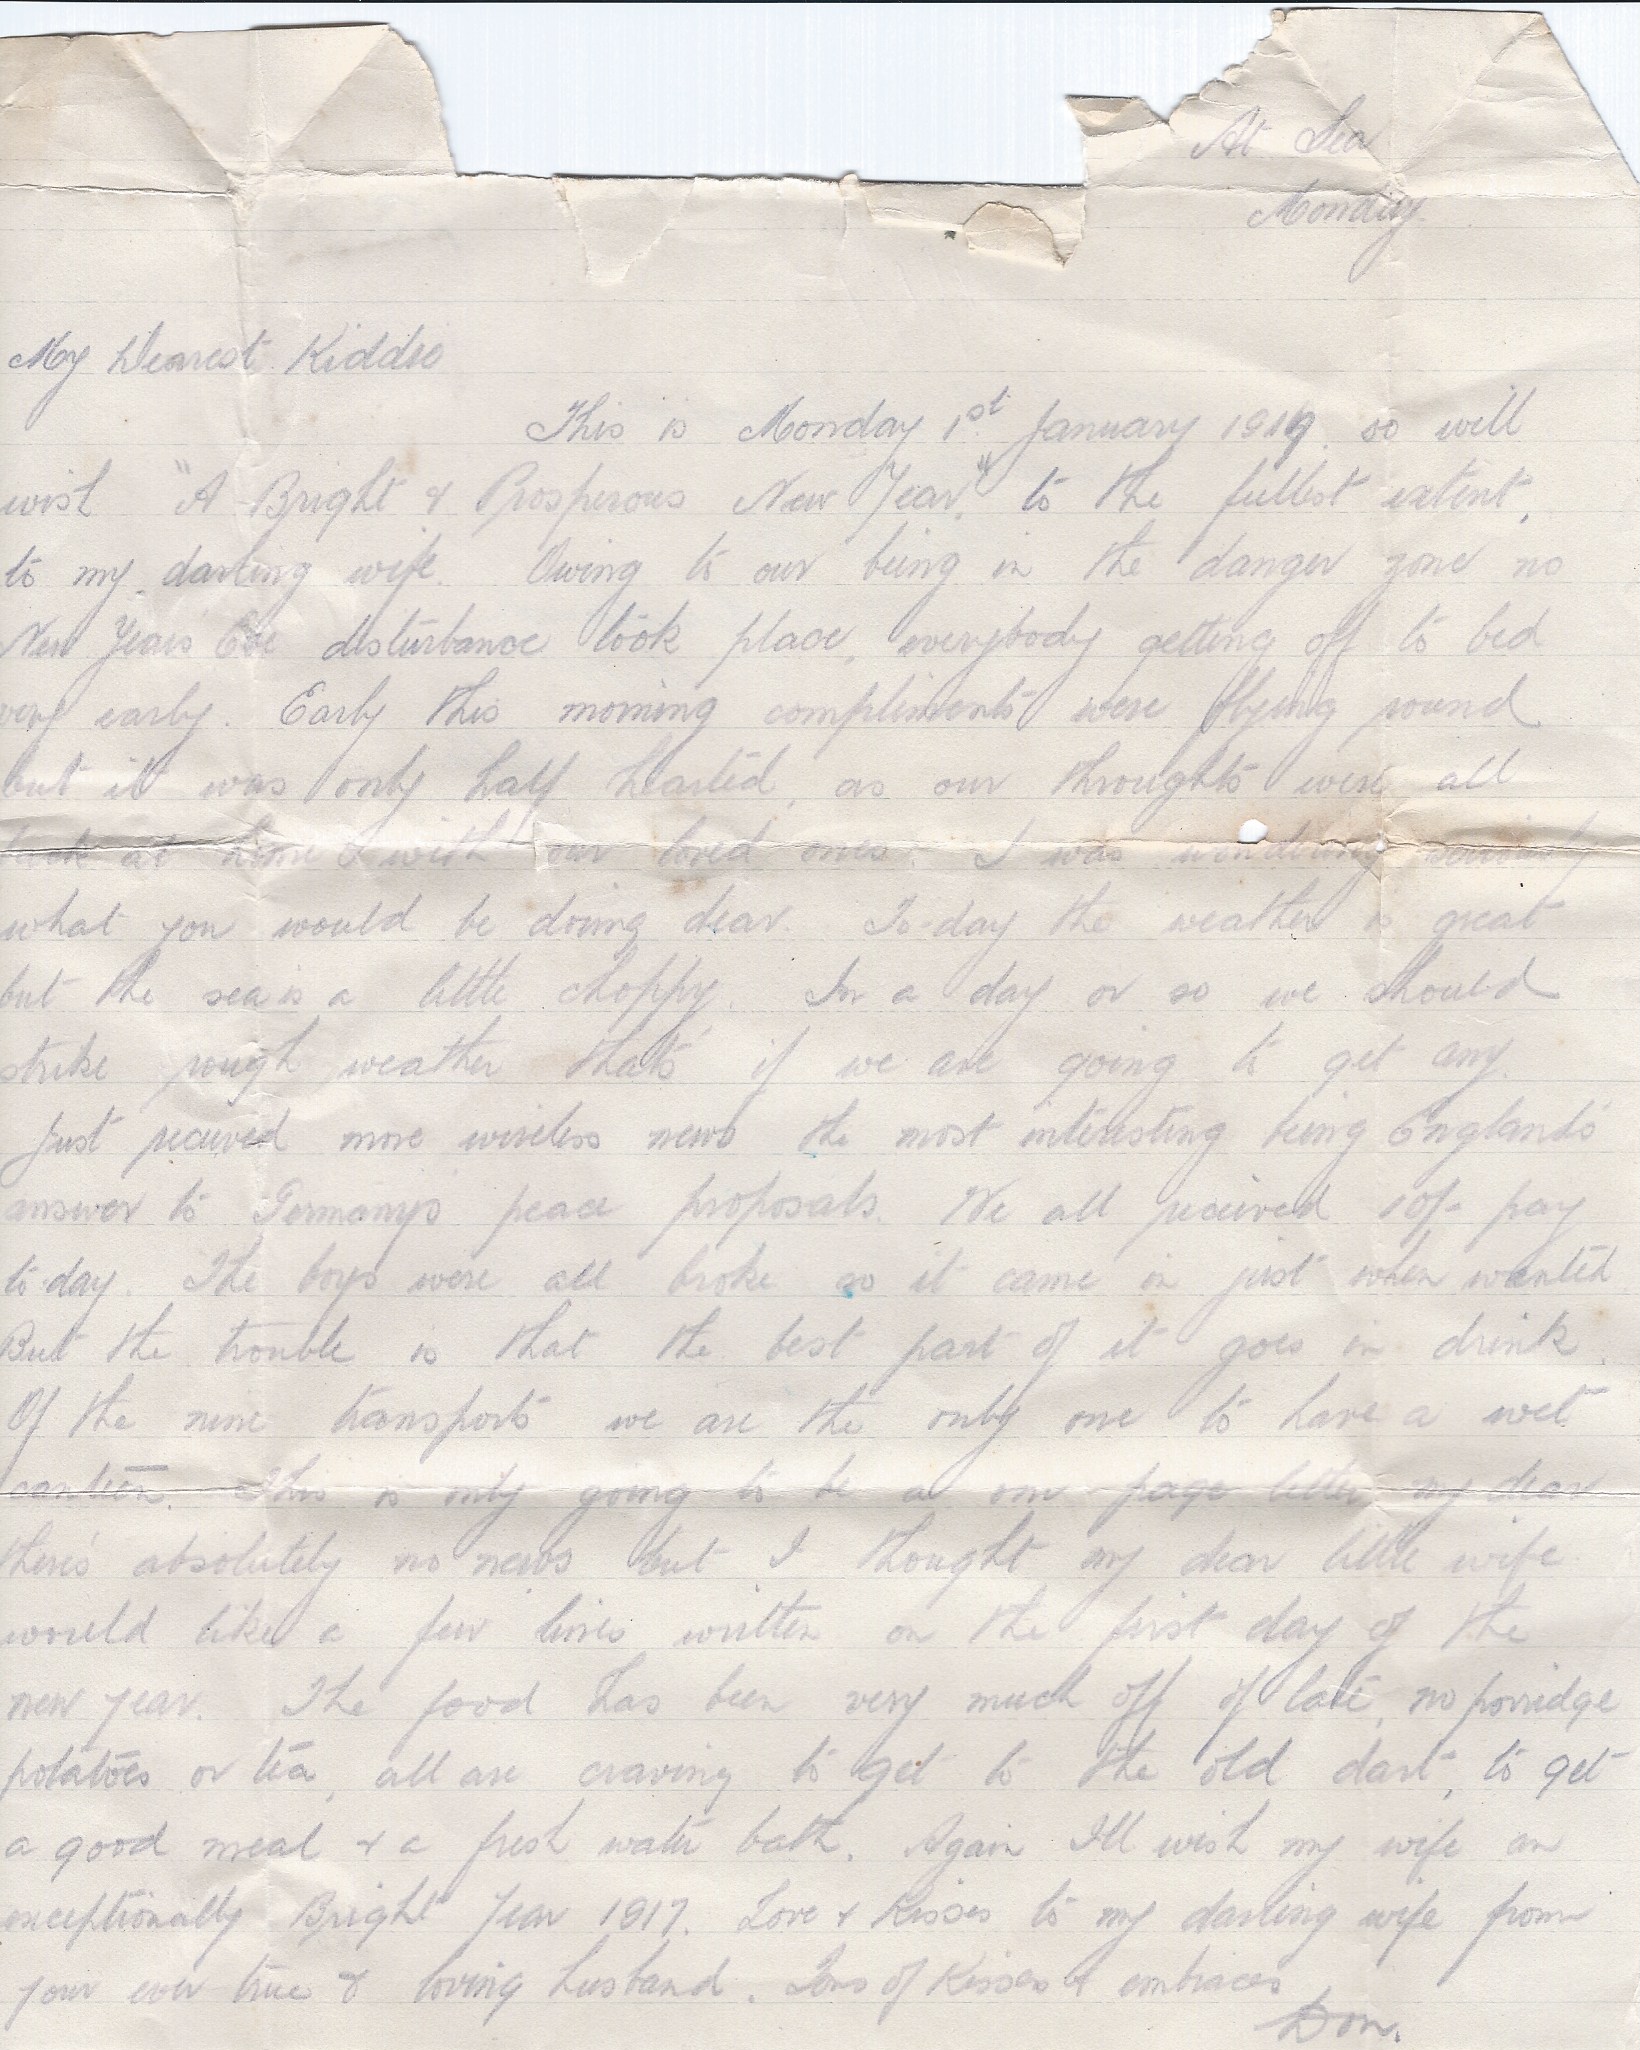 At Sea
Monday
My Dearest Kiddie
This is Monday 1st January 1919 so will
wish "A Bright & Prosperous New Year", to the fullest extent,
to my darling wife. Owing to our being in the danger zone no
New Years Eve disturbance took place, everybody getting off to bed
very early. Early this morning compliments were flying round
but it was only half hearted, as our throughts were all
back at home & with our loved ones. I was wondering
what you would be doing dear. To-day the weather is great
but the sea is a little choppy. In a day or so we should
strike rough weather that's if we are going to get any.
Just received more wireless news the most interesting being England's
answer to Germany's peace proposals. We all received 10/- pay
to-day. The boys were all broke so it came in just when wanted
But the trouble is that the best part of it goes in drink.
Of the nine transports we are the only one to have a wet
canteen. This is only going to be a one page letter my dear
there's absolutely no news but I thought my dear little wife
would like a few lines written on the first day of the
new year. The food has been very much off of late, no porridge
potatoes or tea, all are craving to get to the old dart, to get
a good meal & a fresh water bath. Again I'll wish my wife an
exceptionally Bright Year 1917. Love & Kisses to my darling wife from
your ever true & loving husband. Tons of Kisses & embraces
Don.